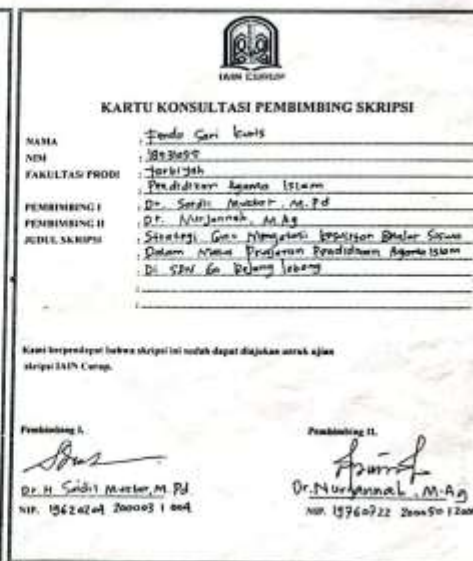 IAIN CURUP
KARTU KONSULTASI PEMBIMBING SKRIPSI
NAMA : Fendo Sari
NIM :
FAKULTAS/ PRODI : Tarbiyah
Pendidikan Agama Islam
PEMBIMBING I : Dr. Saidil Mustar, M.Pd
PEMBIMBING II : Dr. Nurjannah, M.Ag
JUDUL SKRIPSI : Strategi Guru Mengatasi Kesulitan Belajar Siswa
Dalam Mata Pelajaran Pendidikan Agama Islam
Di SDN 60 Rejang Lebong
Kami berpendapat bahwa skripsi ini sudah dapat diajukan untuk ujian
skripsi IAIN Curup.
Pembimbing I,
Pembimbing II,
Dr. H Saidil Mustar, M.Pd
Dr. Nurjannah, M.Ag
NIP. 19620204 200003 1 004
NIP. 19760722 200501 2 00